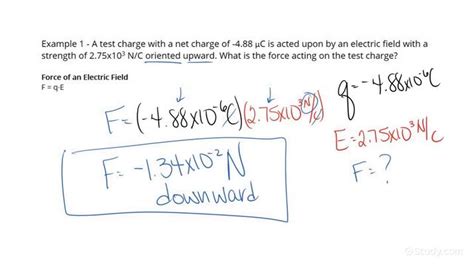 Example 1 - A test charge with a net charge of -4.88 μC is acted upon by an electric field with a
strength of 2.75x10³ N/C oriented upward. What is the force acting on the test charge?
Force of an Electric Field
F = q·E
F=(-4.88x10⁻⁶C)(2.75x10³N/C)
F= -1.34x10⁻²N
downward
q=-4.88x10⁻⁶C
E=2.75x10³N/C
F=?
Study.com